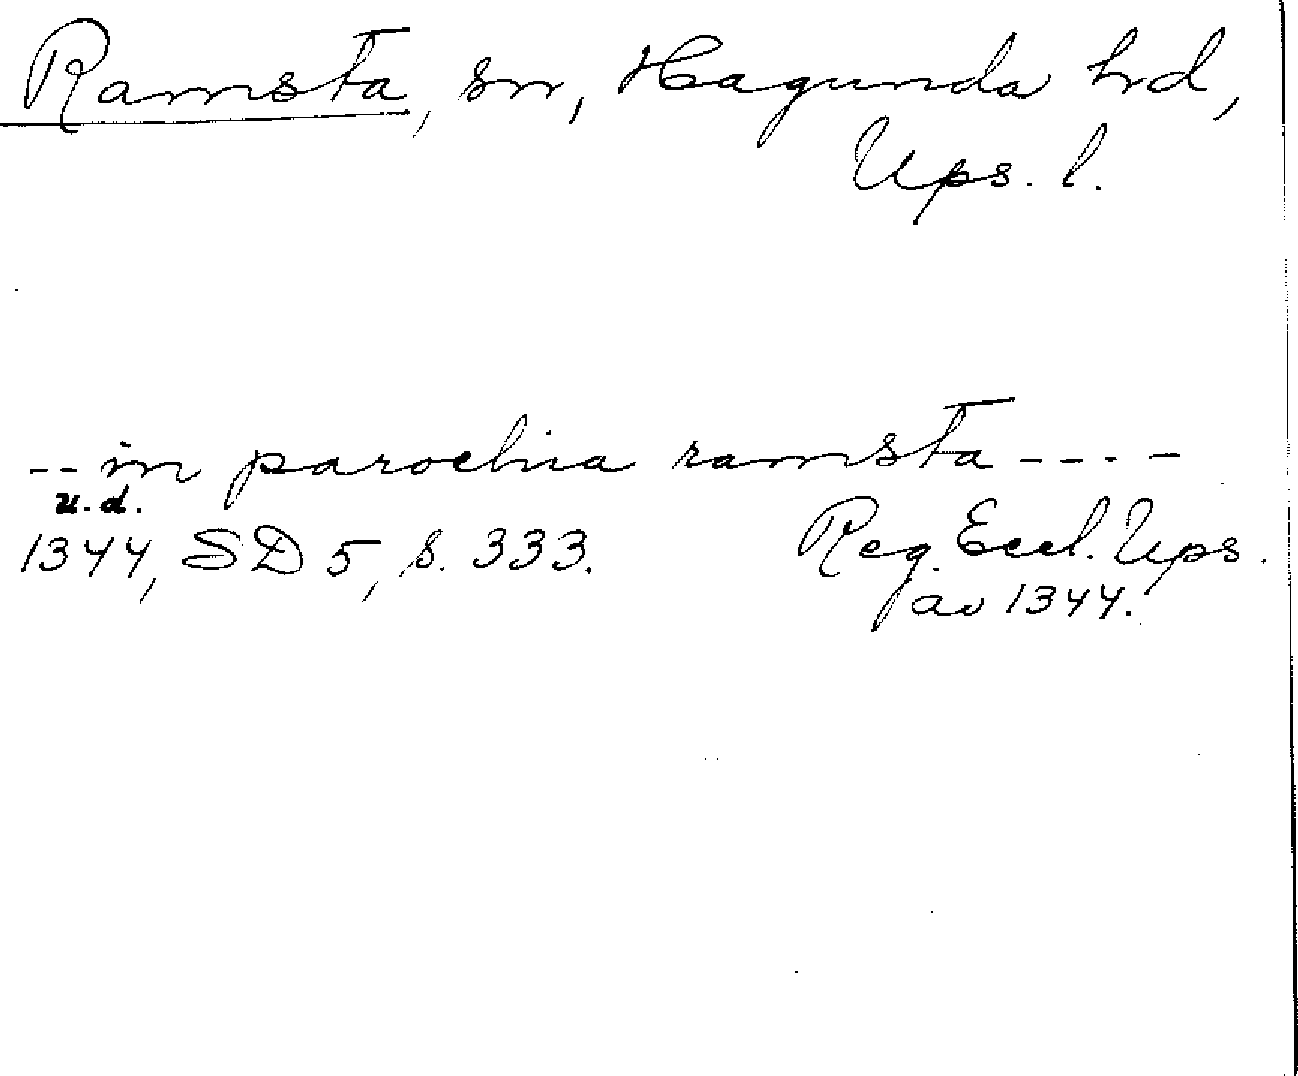 Ramsta, sn, Hagunda hrd,
Ups. l.
-- in parochia ramsta ----
u.d.
1344, SD 5, s. 333. Reg. Eccl. Ups.
av 1344.